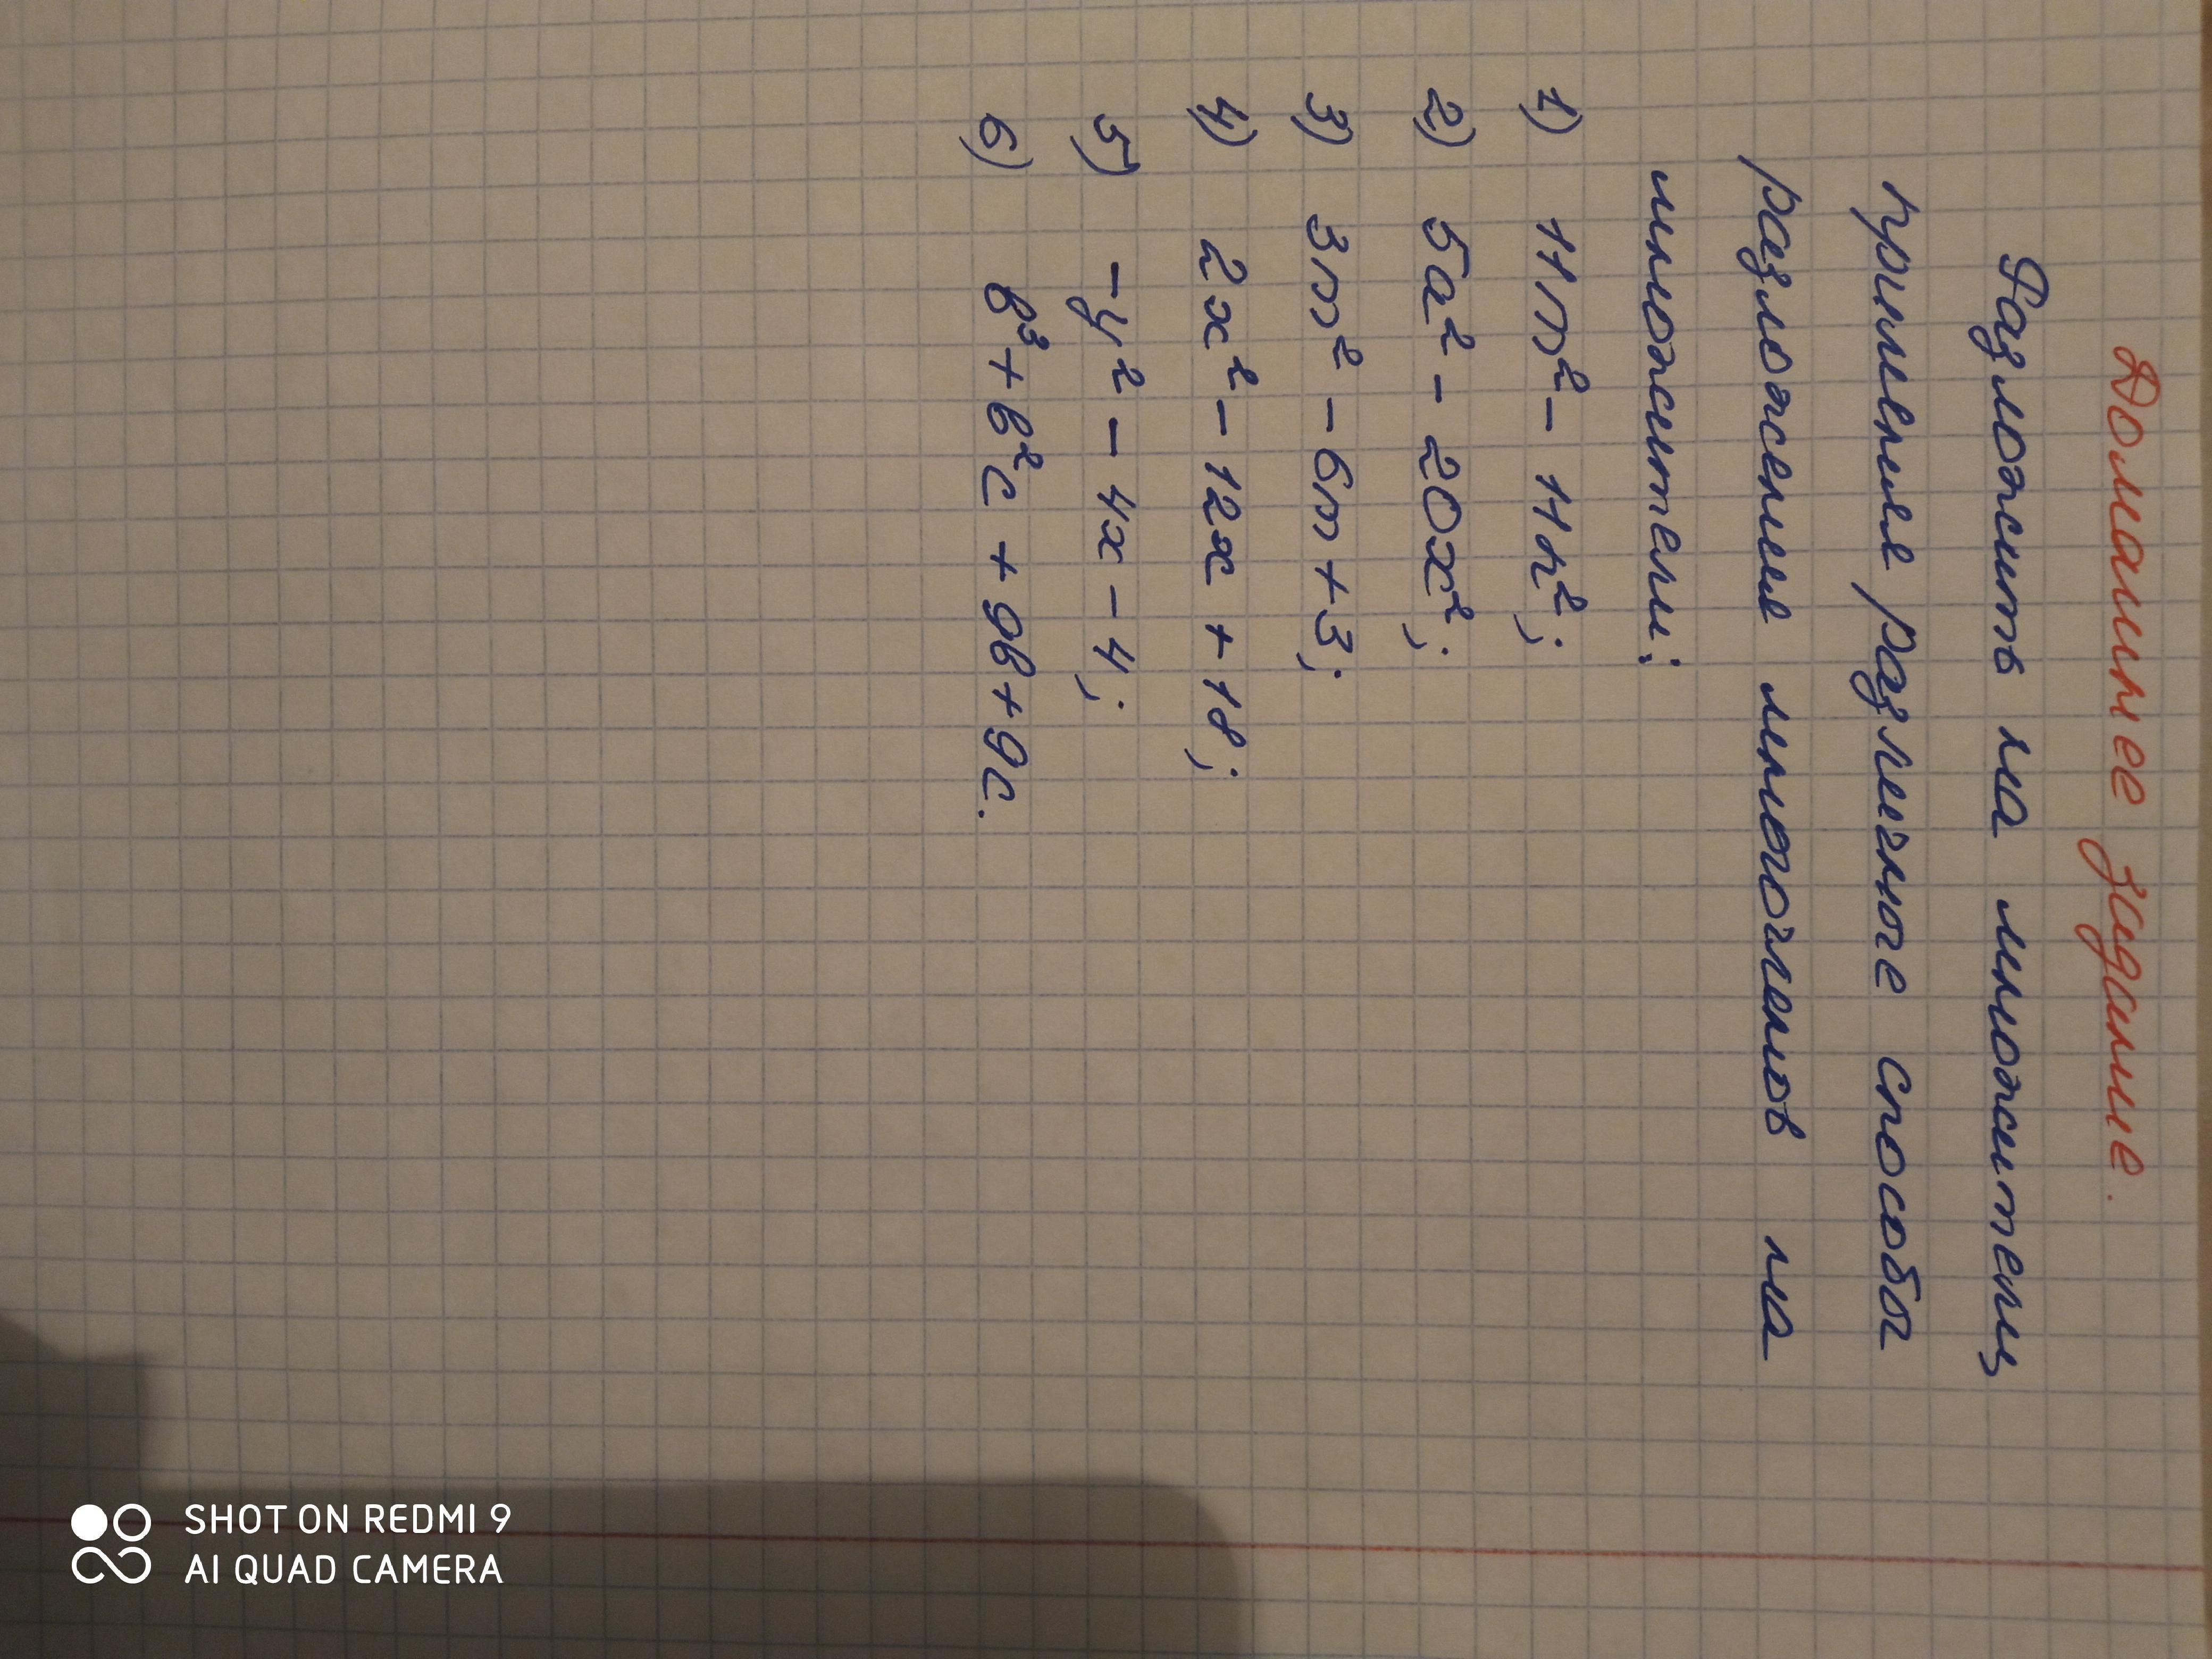 Домашнее задание.
Разложить на множители,
применяя различные способы
разложения многочленов на
множители:
1) 11m² - 11n²;
2) 5a² - 20x²;
3) 3m² - 6m + 3;
4) 2x² - 12x + 18;
5) -y² - 4x - 4;
6) b³ + b²c + 9b + 9c.
SHOT ON REDMI 9
AI QUAD CAMERA